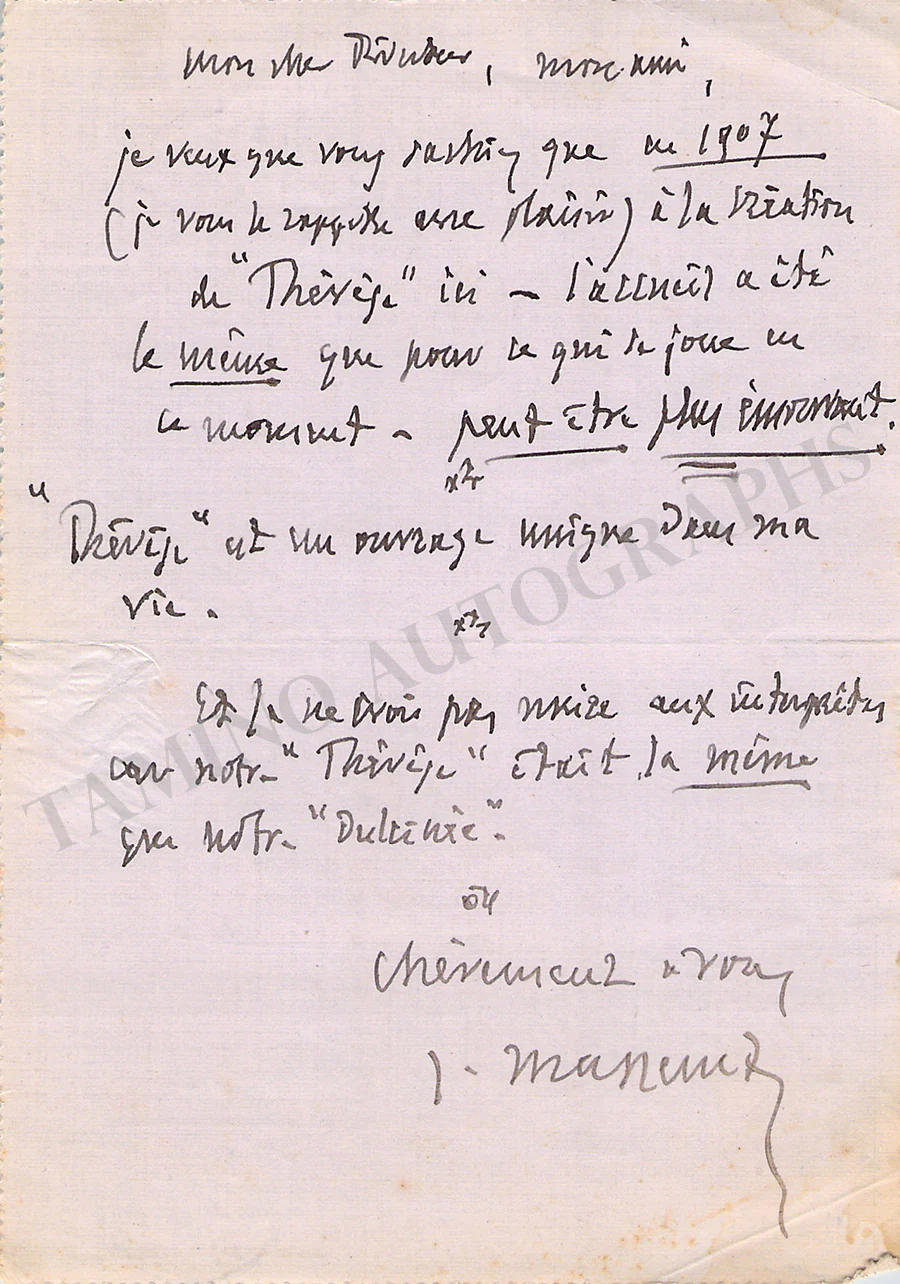 mon cher Directeur, mon ami,
je veux que vous sachiez que en 1907
(je vous le rappelle avec plaisir) à la création
de "Thérèse" ici – l'accueil a été
le même que pour ce qui se joue en
ce moment – peut être plus émouvant.
"Thérèse" est un ouvrage unique dans ma
vie.
Et je ne crois pas nuire aux interprètes
car notre "Thérèse" était la même
que notre "Dulcinée".
Chèrement à vous
J. Massenet
TAMINO AUTOGRAPHS